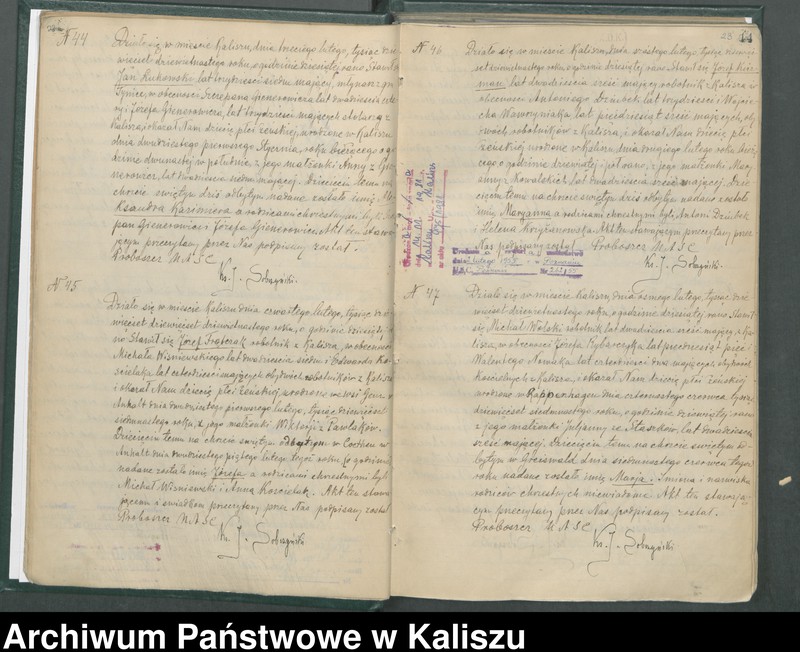 N 44
Działo się w mieście Kaliszu, dnia trzeciego lutego, tysiąc
dziewiętnastego roku, o godzinie dziesiątej rano. Stawił
Jan Kukowski, lat trzydzieści siedm mający, młynarz
Tyniec, w obecności Szczepana Gienerowicza, lat dwadzieścia
i Józefa Gienerowicza, lat trzydzieści mających stolarzy z
Kalisza, i okazał Nam dziecię płci żeńskiej, urodzone w Kaliszu
dnia dwudziestego pierwszego Stycznia, roku bieżącego o go
dzinie dwunastej w południe, z jego małżonki Anny z Gie
nerowicz, lat dwadzieścia siedm mającej. Dziecięciu temu na
chrzcie świętym dziś odbytym nadane zostało imię
Kazimiera a rodzicami chrzestnymi byli
pan Gienerowicz i Józefa Gienerowicz. Akt ten stawa
jącym przeczytany przez Nas podpisany został.
Proboszcz U.A.S.C.
Ks. J. Sobczyński.
N 45
Działo się w mieście Kaliszu dnia czwartego lutego, tysiąc
dziewięćset dziewiętnastego roku, o godzinie dziesiątej
no. Stawił się Józef Frątczak robotnik z Kalisza, w obecności
Michała Wiśniewskiego lat dwadzieścia siedm i Edwarda Ko
ścielaka lat czterdzieści mających, obydwóch robotników z Kalisza
i okazał Nam dziecię płci żeńskiej, urodzone we wsi
Anhalt dnia dwudziestego pierwszego lutego, tysiąc dziewięćset
siedmnastego roku, z jego małżonki Wiktorji z Pawlaków.
Dziecięciu temu na chrzcie świętym odbytym w Coethen w
Anhalt dnia dwudziestego piątego lutego tegoż roku
nadane zostało imię Józefa a rodzicami chrzestnymi byli
Michał Wiśniewski i Anna Kościelak. Akt ten stawa
jącemu i świadkom przeczytany, przez Nas podpisany został
Proboszcz U.A.S.C.
Ks. J. Sobczyński
25
N 46
Działo się w mieście Kaliszu, dnia szóstego lutego, tysiąc dziewięć
set dziewiętnastego roku, o godzinie dziesiątej rano. Stawił się Józef
lat dwadzieścia sześć mający robotnik z Kalisza w
obecności Antoniego Dziubek lat trzydzieści i Wojcie
cha Wawrzyniaka lat pięćdziesiąt sześć mających, oby
dwóch robotników z Kalisza, i okazał Nam dziecię płci
żeńskiej urodzone w Kaliszu, dnia drugiego lutego roku bieżą
cego o godzinie dziesiątej rano, z jego małżonki Mary
anny z Kowalskich lat dwadzieścia sześć mającej. Dzie
cięciu temu na chrzcie świętym dziś odbytym nadane zostało
imię Maryanna a rodzicami chrzestnymi byli Antoni Dziubek
i Helena Krzyżanowska. Akt ten stawającym przeczytany przez
Nas podpisany został. Proboszcz U.A.S.C.
Ks. J. Sobczyński.
N 47
Działo się w mieście Kaliszu, dnia ósmego lutego, tysiąc dzie
więćset dziewiętnastego roku, o godzinie dziesiątej rano. Stawił
się Michał Wolski robotnik lat dwadzieścia sześć mający, z Ka
lisza, w obecności Józefa Rybarczyka lat pięćdziesiąt pięć i
Walentego Nowaka lat czterdzieści dwa mających
kościelnych z Kalisza, i okazał Nam dziecię płci żeńskiej
urodzone w Kappenhagen dnia czternastego czerwca tysiąc
dziewięćset siedmnastego roku, o godzinie dziewiątej rano
z jego małżonki Julianny ze Stasiaków, lat dwadzieścia
sześć mającej. Dziecięciu temu na chrzcie świętym od
bytym w Greifswald dnia siedmnastego czerwca tegoż
roku nadane zostało imię Marja. Imiona i nazwiska
rodziców chrzestnych niewiadome. Akt ten stawają
cym przeczytany przez Nas podpisany został.
Proboszcz U.A.S.C.
Ks. J. Sobczyński
Archiwum Państwowe w Kaliszu